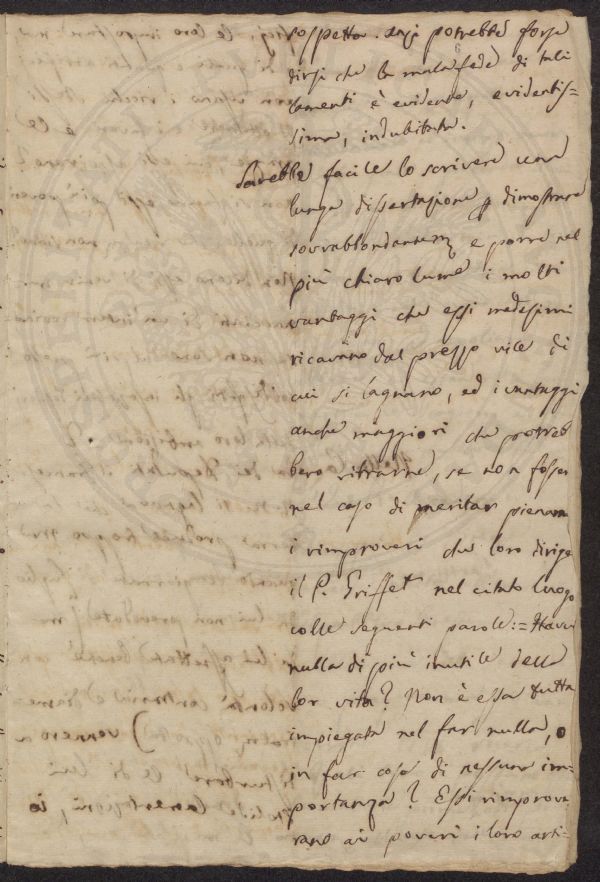 sospetta. anzi potrebbe forse
dirsi che la mala fede di tali
lamenti è evidente, evidentis=
sima, indubitata.
Sarebbe facile lo scrivere una
lunga dissertazione p dimostrare
sovrabbondantem e porre nel
più chiaro lume i molti
vantaggi che essi medesimi
ricavano dal prezzo vile di
cui si lagnano, ed i vantaggi
anche maggiori che potreb
bero ritrarne, se non fosser
nel caso di meritar pienam
i rimproveri che loro dirige
il P. Griffet nel citato luogo
colle seguenti parole:= Havvi
nulla di più inutile della
lor vita? Non è essa tutta
impiegata nel far nulla, o
in far cose di nessuna im=
portanza? Essi rimprove
rano ai poveri i loro arti=